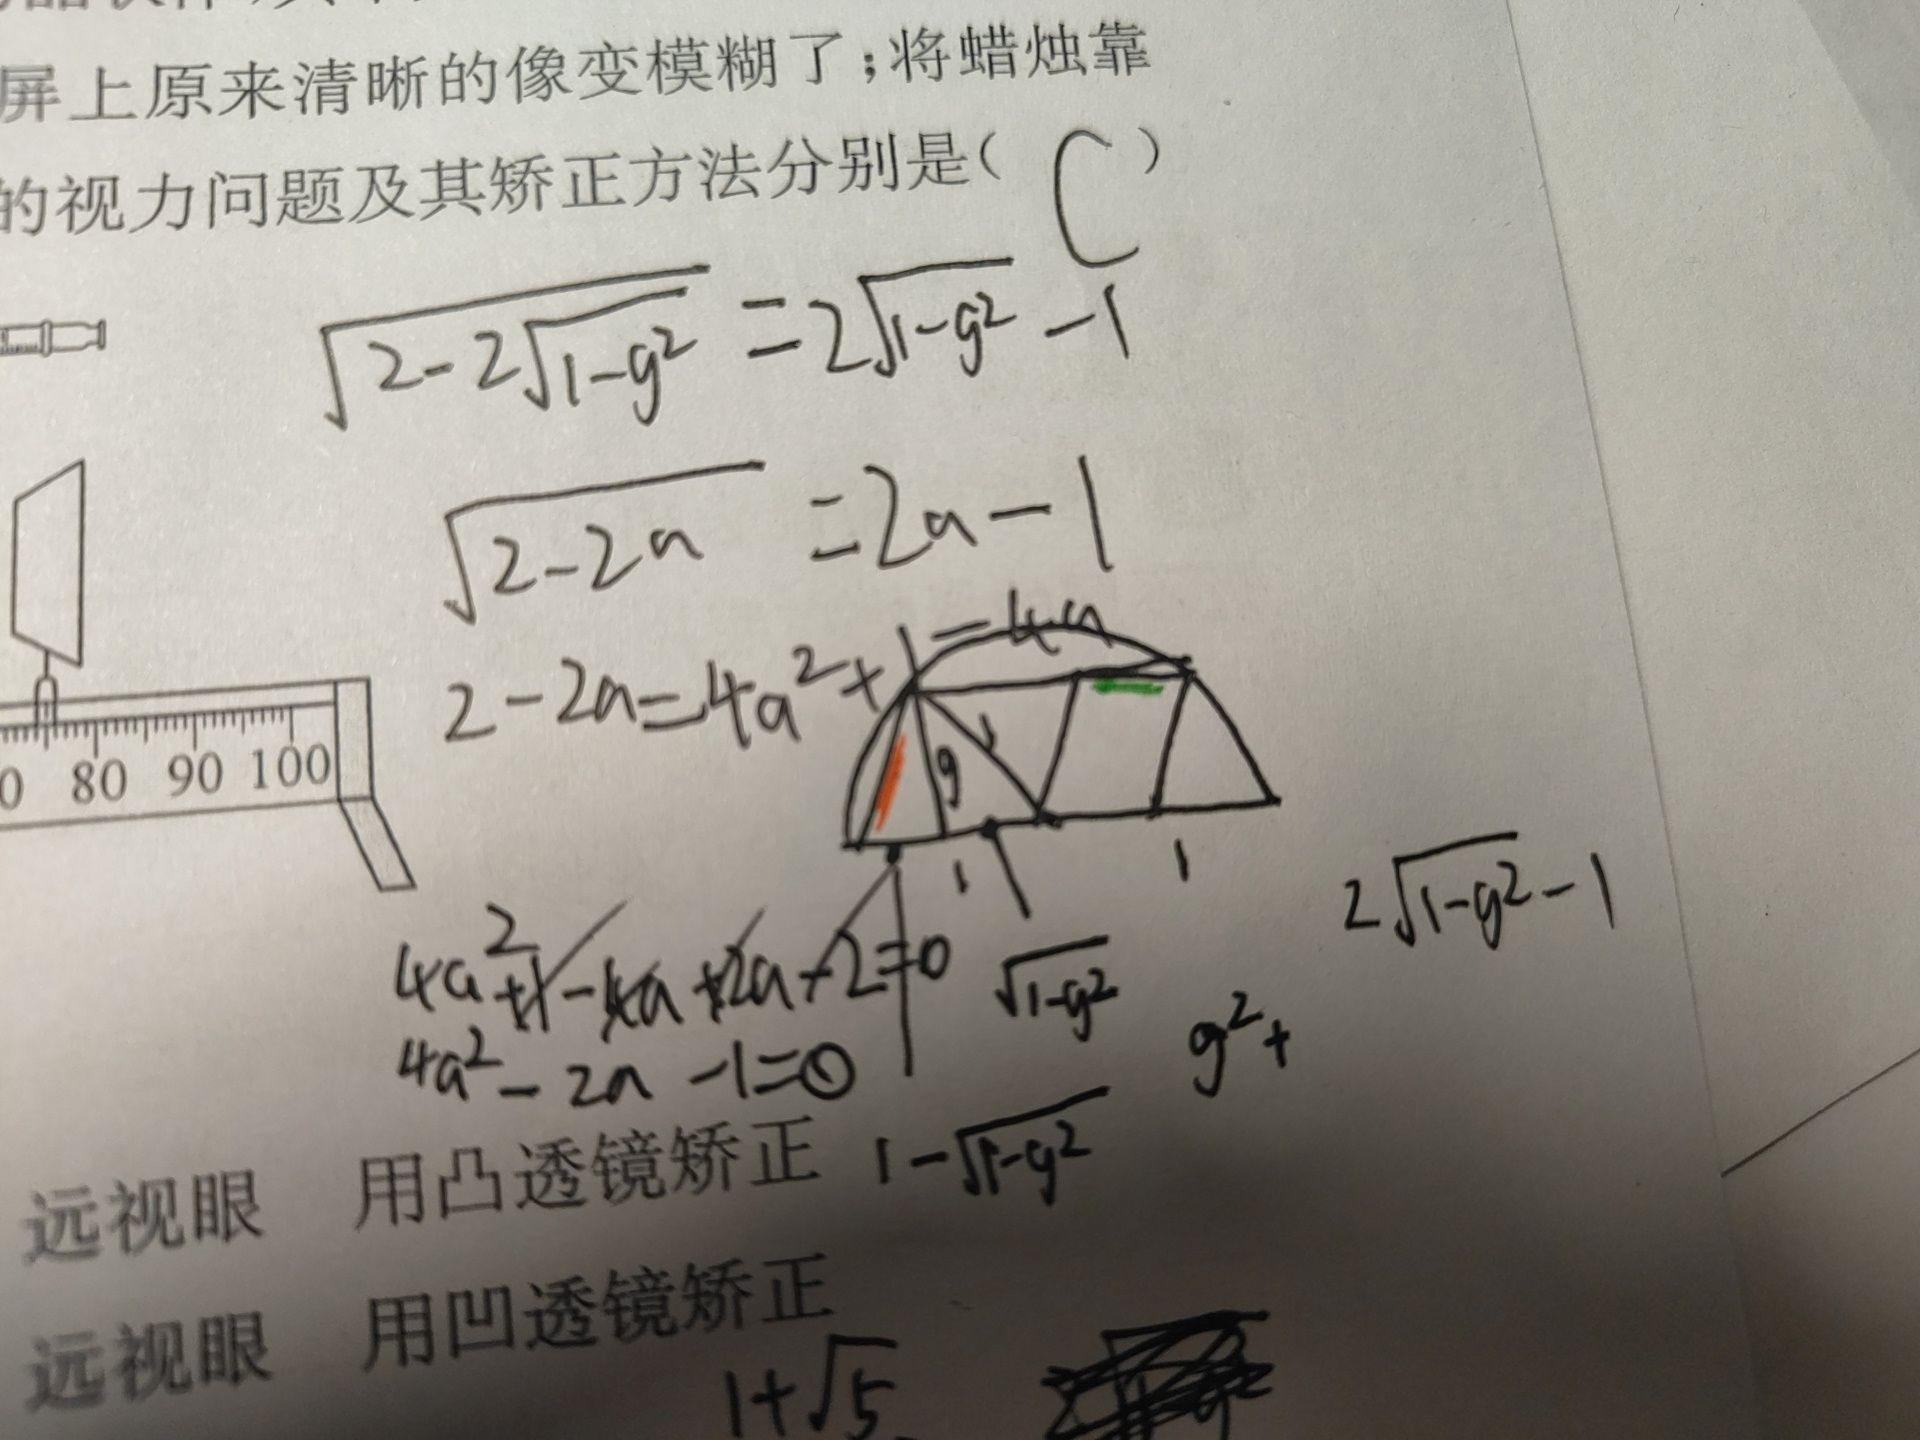 屏上原来清晰的像变模糊了；将蜡烛靠
的视力问题及其矫正方法分别是( C )
√(2-2√(1-g²)) = 2√(1-g²) -1
√(2-2a) = 2a-1
2-2a=4a²+1=4a
g
1
1 1
80 90 100
2√(1-g²)-1
4a²+1-4a+2a-2=0
√(1-g²)
g²+
4a²-2a-1=0
1-√(1-g²)
远视眼 用凸透镜矫正
远视眼 用凹透镜矫正
1+√5